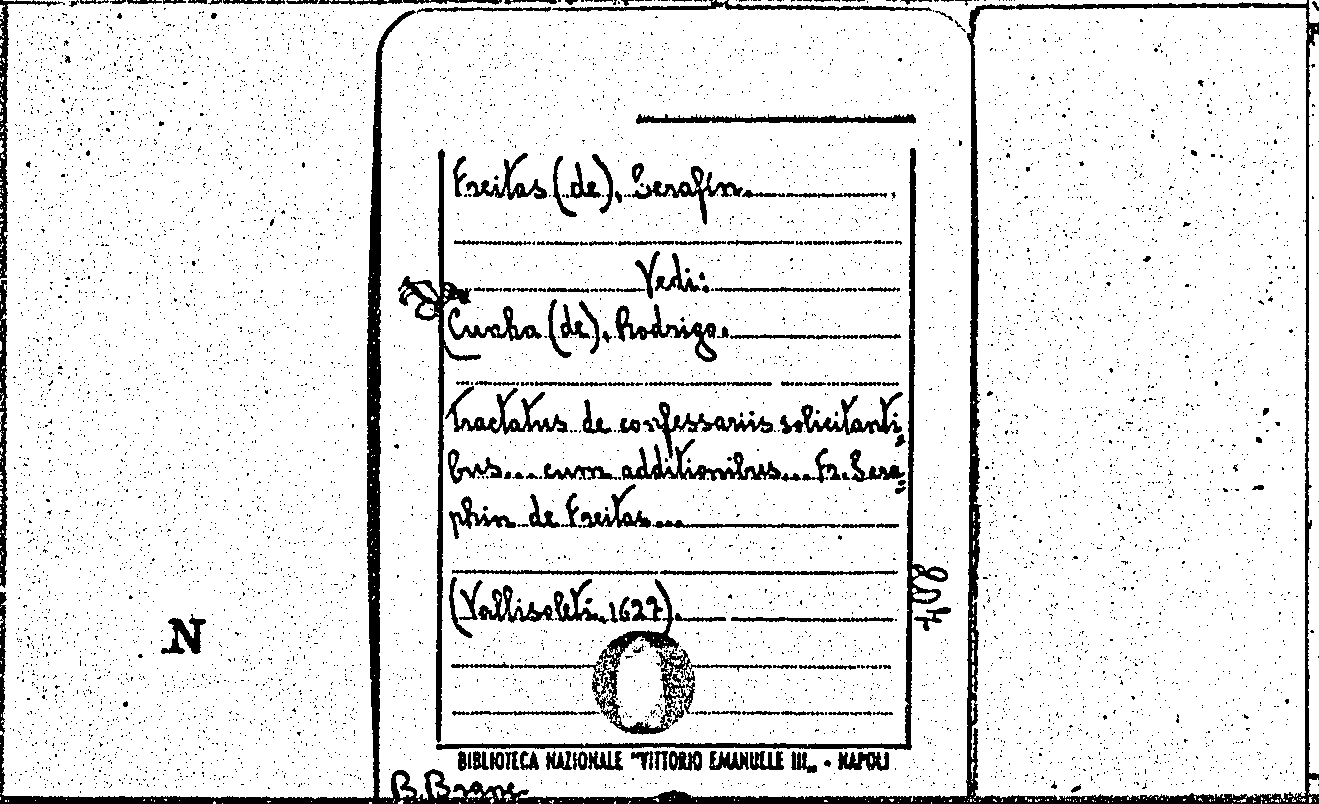 Freitas (de), Serafín.
Vedi:
Cunha (de), Rodrigo.
Tractatus de confessariis solicitanti=
bus... cum additionibus... Fr. Sera=
phin de Freitas...
(Vallisoleti, 1627).
N
BIBLIOTECA NAZIONALE "VITTORIO EMANUELE III„ - NAPOLI